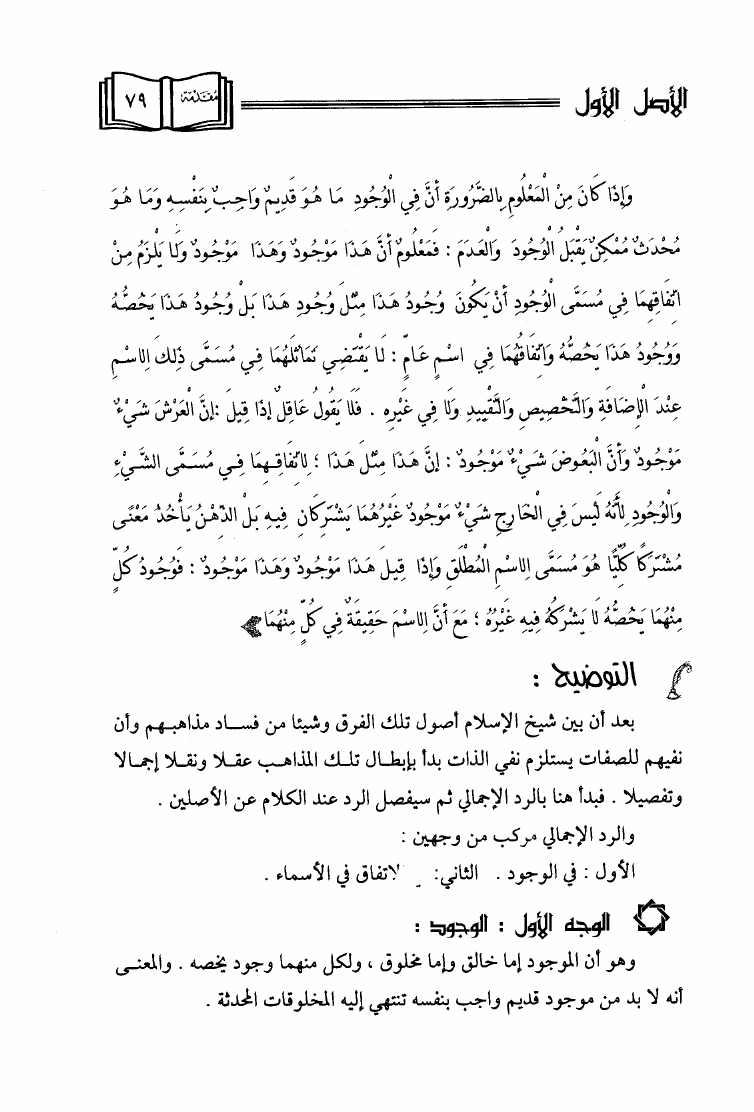 الأصل الأول
مقدمة ٧٩
وَإِذَا كَانَ مِنْ الْمَعْلُومِ بِالضَّرُورَةِ أَنَّ فِي الْوُجُودِ مَا هُوَ قَدِيمٌ وَاجِبٌ بِنَفْسِهِ وَمَا هُوَ
مُحْدَثٌ مُمْكِنٌ يَقْبَلُ الْوُجُودَ وَالْعَدَمَ : فَمَعْلُومٌ أَنَّ هَذَا مَوْجُودٌ وَهَذَا مَوْجُودٌ وَلَا يَلْزَمُ مِنْ
اتِّفَاقِهِمَا فِي مُسَمَّى الْوُجُودِ أَنْ يَكُونَ وُجُودُ هَذَا مِثْلَ وُجُودِ هَذَا بَلْ وُجُودُ هَذَا يَخُصُّهُ
وَوُجُودُ هَذَا يَخُصُّهُ وَاتِّفَاقُهُمَا فِي اسْمٍ عَامٍّ : لَا يَقْتَضِي تَمَاثُلَهُمَا فِي مُسَمَّى ذَلِكَ الِاسْمِ
عِنْدَ الْإِضَافَةِ وَالتَّخْصِيصِ وَالتَّقْيِيدِ وَلَا فِي غَيْرِهِ . فَلَا يَقُولُ عَاقِلٌ إِذَا قِيلَ :إِنَّ الْعَرْشَ شَيْءٌ
مَوْجُودٌ وَأَنَّ الْبَعُوضَ شَيْءٌ مَوْجُودٌ : إِنَّ هَذَا مِثْلُ هَذَا ؛ لِاتِّفَاقِهِمَا فِي مُسَمَّى الشَّيْءِ
وَالْوُجُودِ لِأَنَّهُ لَيْسَ فِي الْخَارِجِ شَيْءٌ مَوْجُودٌ غَيْرُهُمَا يَشْتَرِكَانِ فِيهِ بَلْ الذِّهْنُ يَأْخُذُ مَعْنًى
مُشْتَرَكًا كُلِّيًّا هُوَ مُسَمَّى الِاسْمِ الْمُطْلَقِ وَإِذَا قِيلَ هَذَا مَوْجُودٌ وَهَذَا مَوْجُودٌ : فَوُجُودُ كُلٍّ
مِنْهُمَا يَخُصُّهُ لَا يَشْرَكُهُ فِيهِ غَيْرُهُ ؛ مَعَ أَنَّ الِاسْمَ حَقِيقَةٌ فِي كُلٍّ مِنْهُمَا
التوضيح :
بعد أن بين شيخ الإسلام أصول تلك الفرق وشيئا من فساد مذاهبهم وأن
نفيهم للصفات يستلزم نفي الذات بدأ بإبطال تلك المذاهب عقلا ونقلا إجمالا
وتفصيلا . فبدأ هنا بالرد الإجمالي ثم سيفصل الرد عند الكلام عن الأصلين .
والرد الإجمالي مركب من وجهين :
الأول : في الوجود . الثاني: لاتفاق في الأسماء .
الوجه الأول : الوجود :
وهو أن الموجود إما خالق وإما مخلوق ، ولكل منهما وجود يخصه . والمعنى
أنه لا بد من موجود قديم واجب بنفسه تنتهي إليه المخلوقات المحدثة .